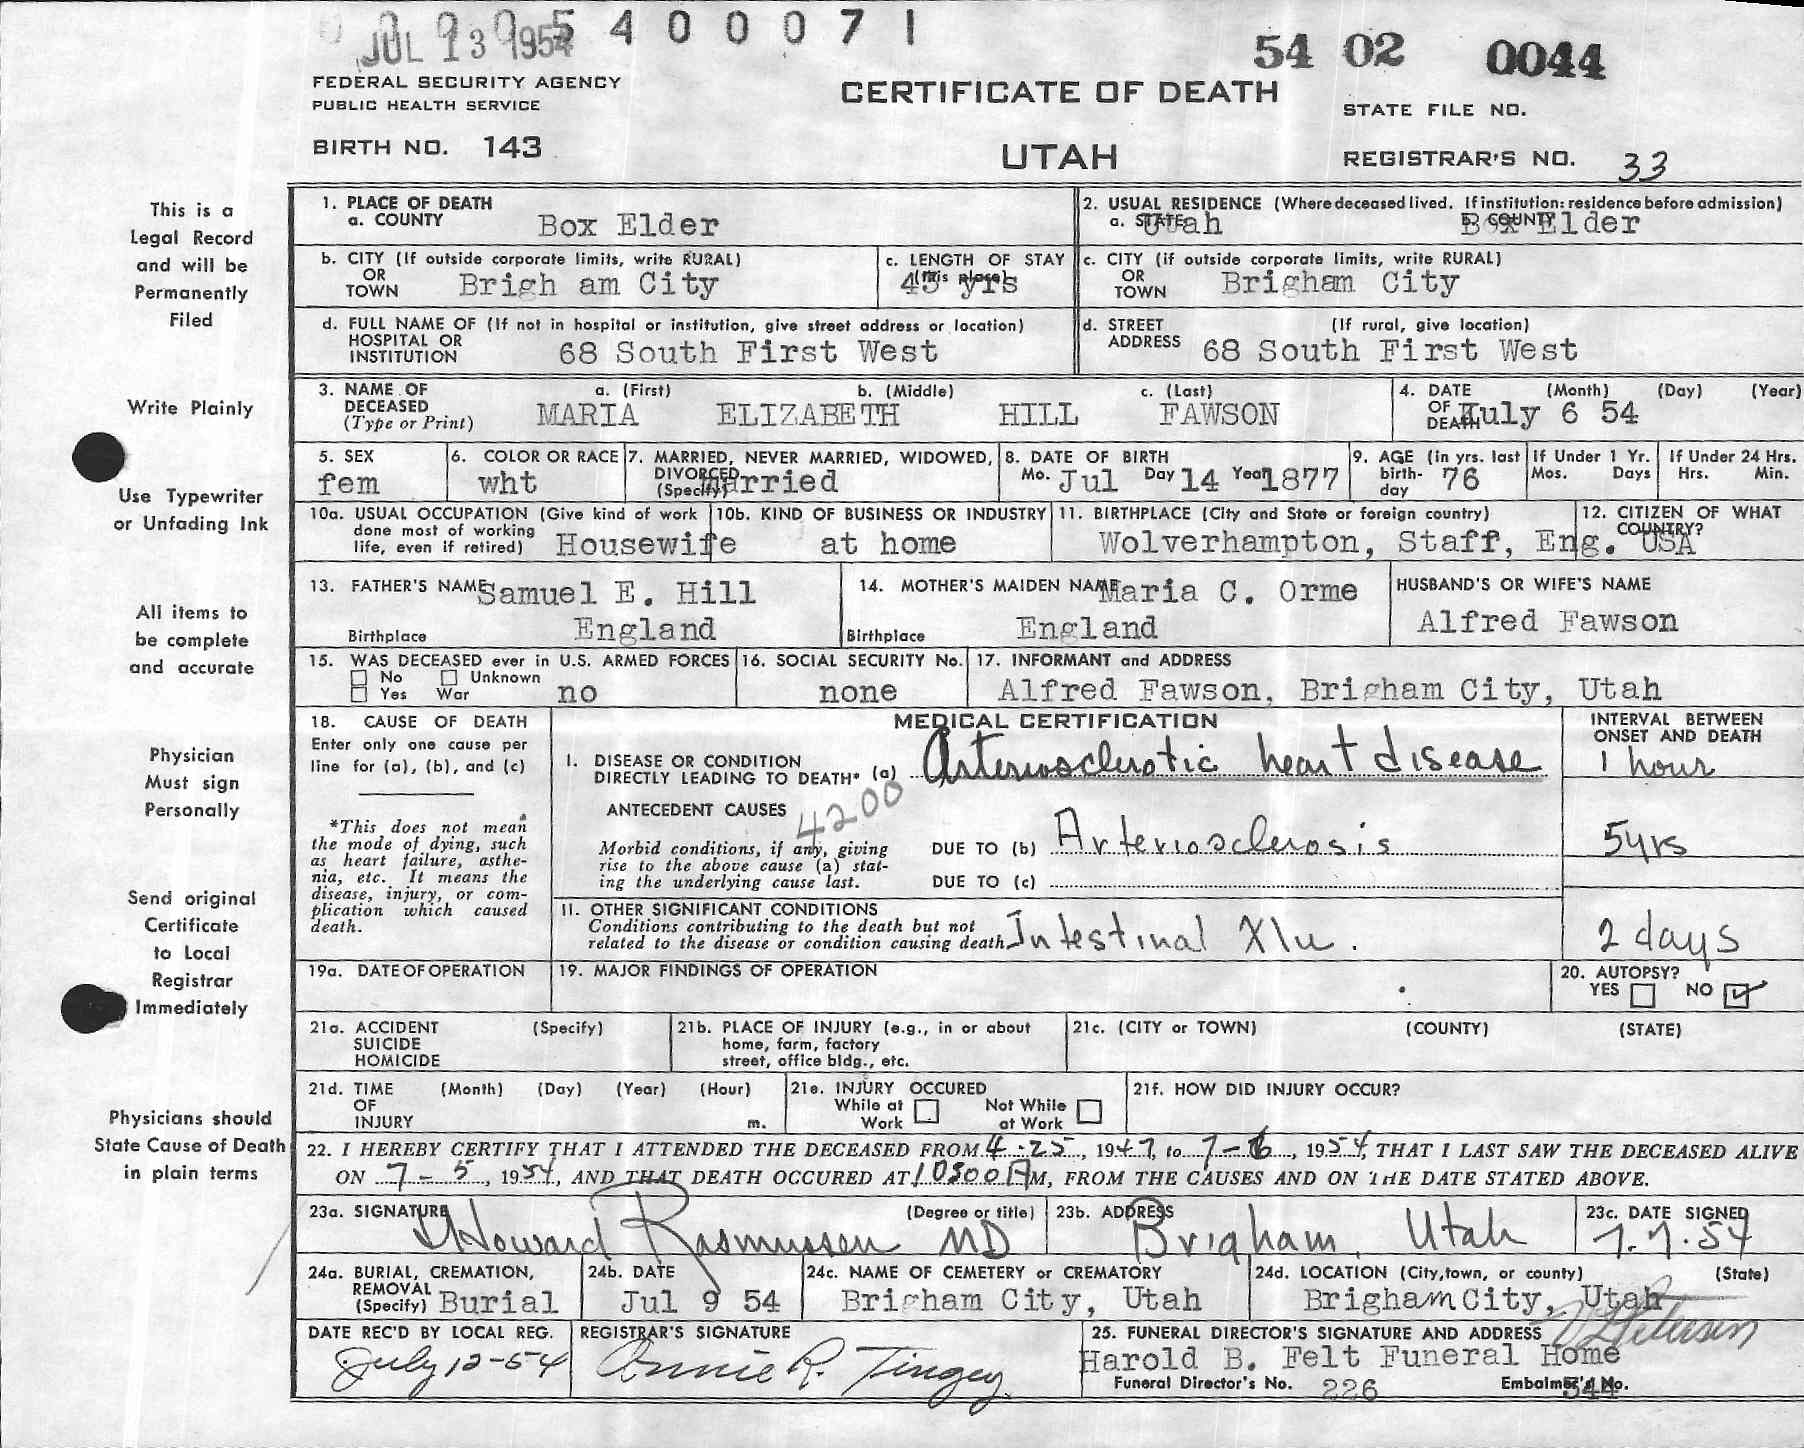 JUL 13 1954 5 4 0 0 0 7 1
54 02 0044
FEDERAL SECURITY AGENCY
PUBLIC HEALTH SERVICE
CERTIFICATE OF DEATH
STATE FILE NO.
BIRTH NO. 143
UTAH
REGISTRAR'S NO. 33
This is a
Legal Record
and will be
Permanently
Filed
Write Plainly
Use Typewriter
or Unfading Ink
All items to
be complete
and accurate
Physician
Must sign
Personally
Send original
Certificate
to Local
Registrar
Immediately
Physicians should
State Cause of Death
in plain terms
1. PLACE OF DEATH
a. COUNTY Box Elder
2. USUAL RESIDENCE (Where deceased lived. If institution: residence before admission)
a. STATE Utah b. COUNTY Box Elder
b. CITY (If outside corporate limits, write RURAL)
OR
TOWN Brigh am City
c. LENGTH OF STAY
(this place)
45 yrs
c. CITY (if outside corporate limits, write RURAL)
OR
TOWN Brigham City
d. FULL NAME OF (If not in hospital or institution, give street address or location)
HOSPITAL OR
INSTITUTION 68 South First West
d. STREET (If rural, give location)
ADDRESS 68 South First West
3. NAME OF a. (First) b. (Middle) c. (Last)
DECEASED
(Type or Print) MARIA ELIZABETH HILL FAWSON
4. DATE (Month) (Day) (Year)
OF
DEATH July 6 54
5. SEX
fem
6. COLOR OR RACE
wht
7. MARRIED, NEVER MARRIED, WIDOWED,
DIVORCED
(Specify) married
8. DATE OF BIRTH
Mo. Jul Day 14 Year 1877
9. AGE (in yrs. last
birth-
day 76
If Under 1 Yr.
Mos. Days
If Under 24 Hrs.
Hrs. Min.
10a. USUAL OCCUPATION (Give kind of work
done most of working
life, even if retired) Housewife
10b. KIND OF BUSINESS OR INDUSTRY
at home
11. BIRTHPLACE (City and State or foreign country)
Wolverhampton, Staff, Eng.
12. CITIZEN OF WHAT
COUNTRY?
USA
13. FATHER'S NAME Samuel E. Hill
Birthplace England
14. MOTHER'S MAIDEN NAME Maria C. Orme
Birthplace England
HUSBAND'S OR WIFE'S NAME
Alfred Fawson
15. WAS DECEASED ever in U.S. ARMED FORCES
No Unknown
Yes War no
16. SOCIAL SECURITY No.
none
17. INFORMANT and ADDRESS
Alfred Fawson, Brigham City, Utah
18. CAUSE OF DEATH
Enter only one cause per
line for (a), (b), and (c)
*This does not mean
the mode of dying, such
as heart failure, asthe-
nia, etc. It means the
disease, injury, or com-
plication which caused
death.
MEDICAL CERTIFICATION
INTERVAL BETWEEN
ONSET AND DEATH
I. DISEASE OR CONDITION
DIRECTLY LEADING TO DEATH* (a) Arteriosclerotic heart disease 1 hour
ANTECEDENT CAUSES 4200
Morbid conditions, if any, giving
rise to the above cause (a) stat-
ing the underlying cause last.
DUE TO (b) Arteriosclerosis 5 yrs
DUE TO (c)
II. OTHER SIGNIFICANT CONDITIONS
Conditions contributing to the death but not
related to the disease or condition causing death. Intestinal Flu. 2 days
19a. DATE OF OPERATION
19. MAJOR FINDINGS OF OPERATION
20. AUTOPSY?
YES NO ✓
21a. ACCIDENT (Specify)
SUICIDE
HOMICIDE
21b. PLACE OF INJURY (e.g., in or about
home, farm, factory
street, office bldg., etc.
21c. (CITY or TOWN) (COUNTY) (STATE)
21d. TIME (Month) (Day) (Year) (Hour)
OF
INJURY m.
21e. INJURY OCCURED
While at Not While
Work at Work
21f. HOW DID INJURY OCCUR?
22. I HEREBY CERTIFY THAT I ATTENDED THE DECEASED FROM 4-25, 1947, to 7-6, 1954, THAT I LAST SAW THE DECEASED ALIVE
ON 7-5, 1954, AND THAT DEATH OCCURED AT M, FROM THE CAUSES AND ON THE DATE STATED ABOVE.
23a. SIGNATURE (Degree or title)
Howard Rasmussen MD
23b. ADDRESS
Brigham, Utah
23c. DATE SIGNED
7.7.54
24a. BURIAL, CREMATION,
REMOVAL
(Specify) Burial
24b. DATE
Jul 9 54
24c. NAME OF CEMETERY or CREMATORY
Brigham City, Utah
24d. LOCATION (City, town, or county) (State)
Brigham City, Utah
DATE REC'D BY LOCAL REG.
July 12-54
REGISTRAR'S SIGNATURE
Annie R. Tingey
25. FUNERAL DIRECTOR'S SIGNATURE AND ADDRESS
Harold B. Felt Funeral Home
Funeral Director's No. 226 Embalmer's No. 544